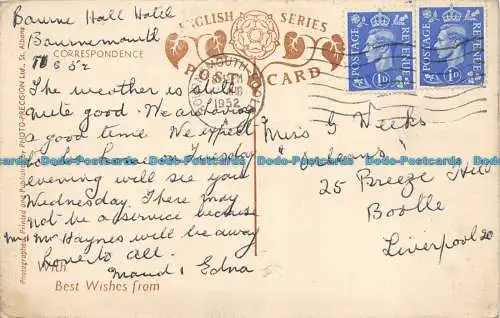 Bourne Hall Hotel
Bournemouth
CORRESPONDENCE
The weather is still
quite good. We are having
a good time. We expect
to be home on Tuesday
evening will see you
Wednesday. There may
not be a service because
Mr Haynes will be away
Love to all.
Maud & Edna
With
Best Wishes from
Photographed, Printed and Published by PHOTO-PRECISION Ltd., St. Albans
ENGLISH SERIES
POST CARD
1952
POSTAGE REVENUE
1D
POSTAGE REVENUE
1D
Miss G Weeks
25 Breeze Hill
Bootle
Liverpool 20
Dodo-Postcards